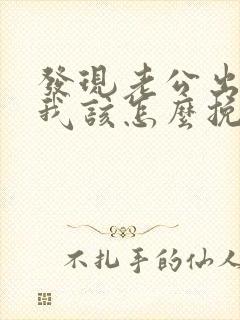 發現老公出
我該怎麼挽
不扎手的仙人